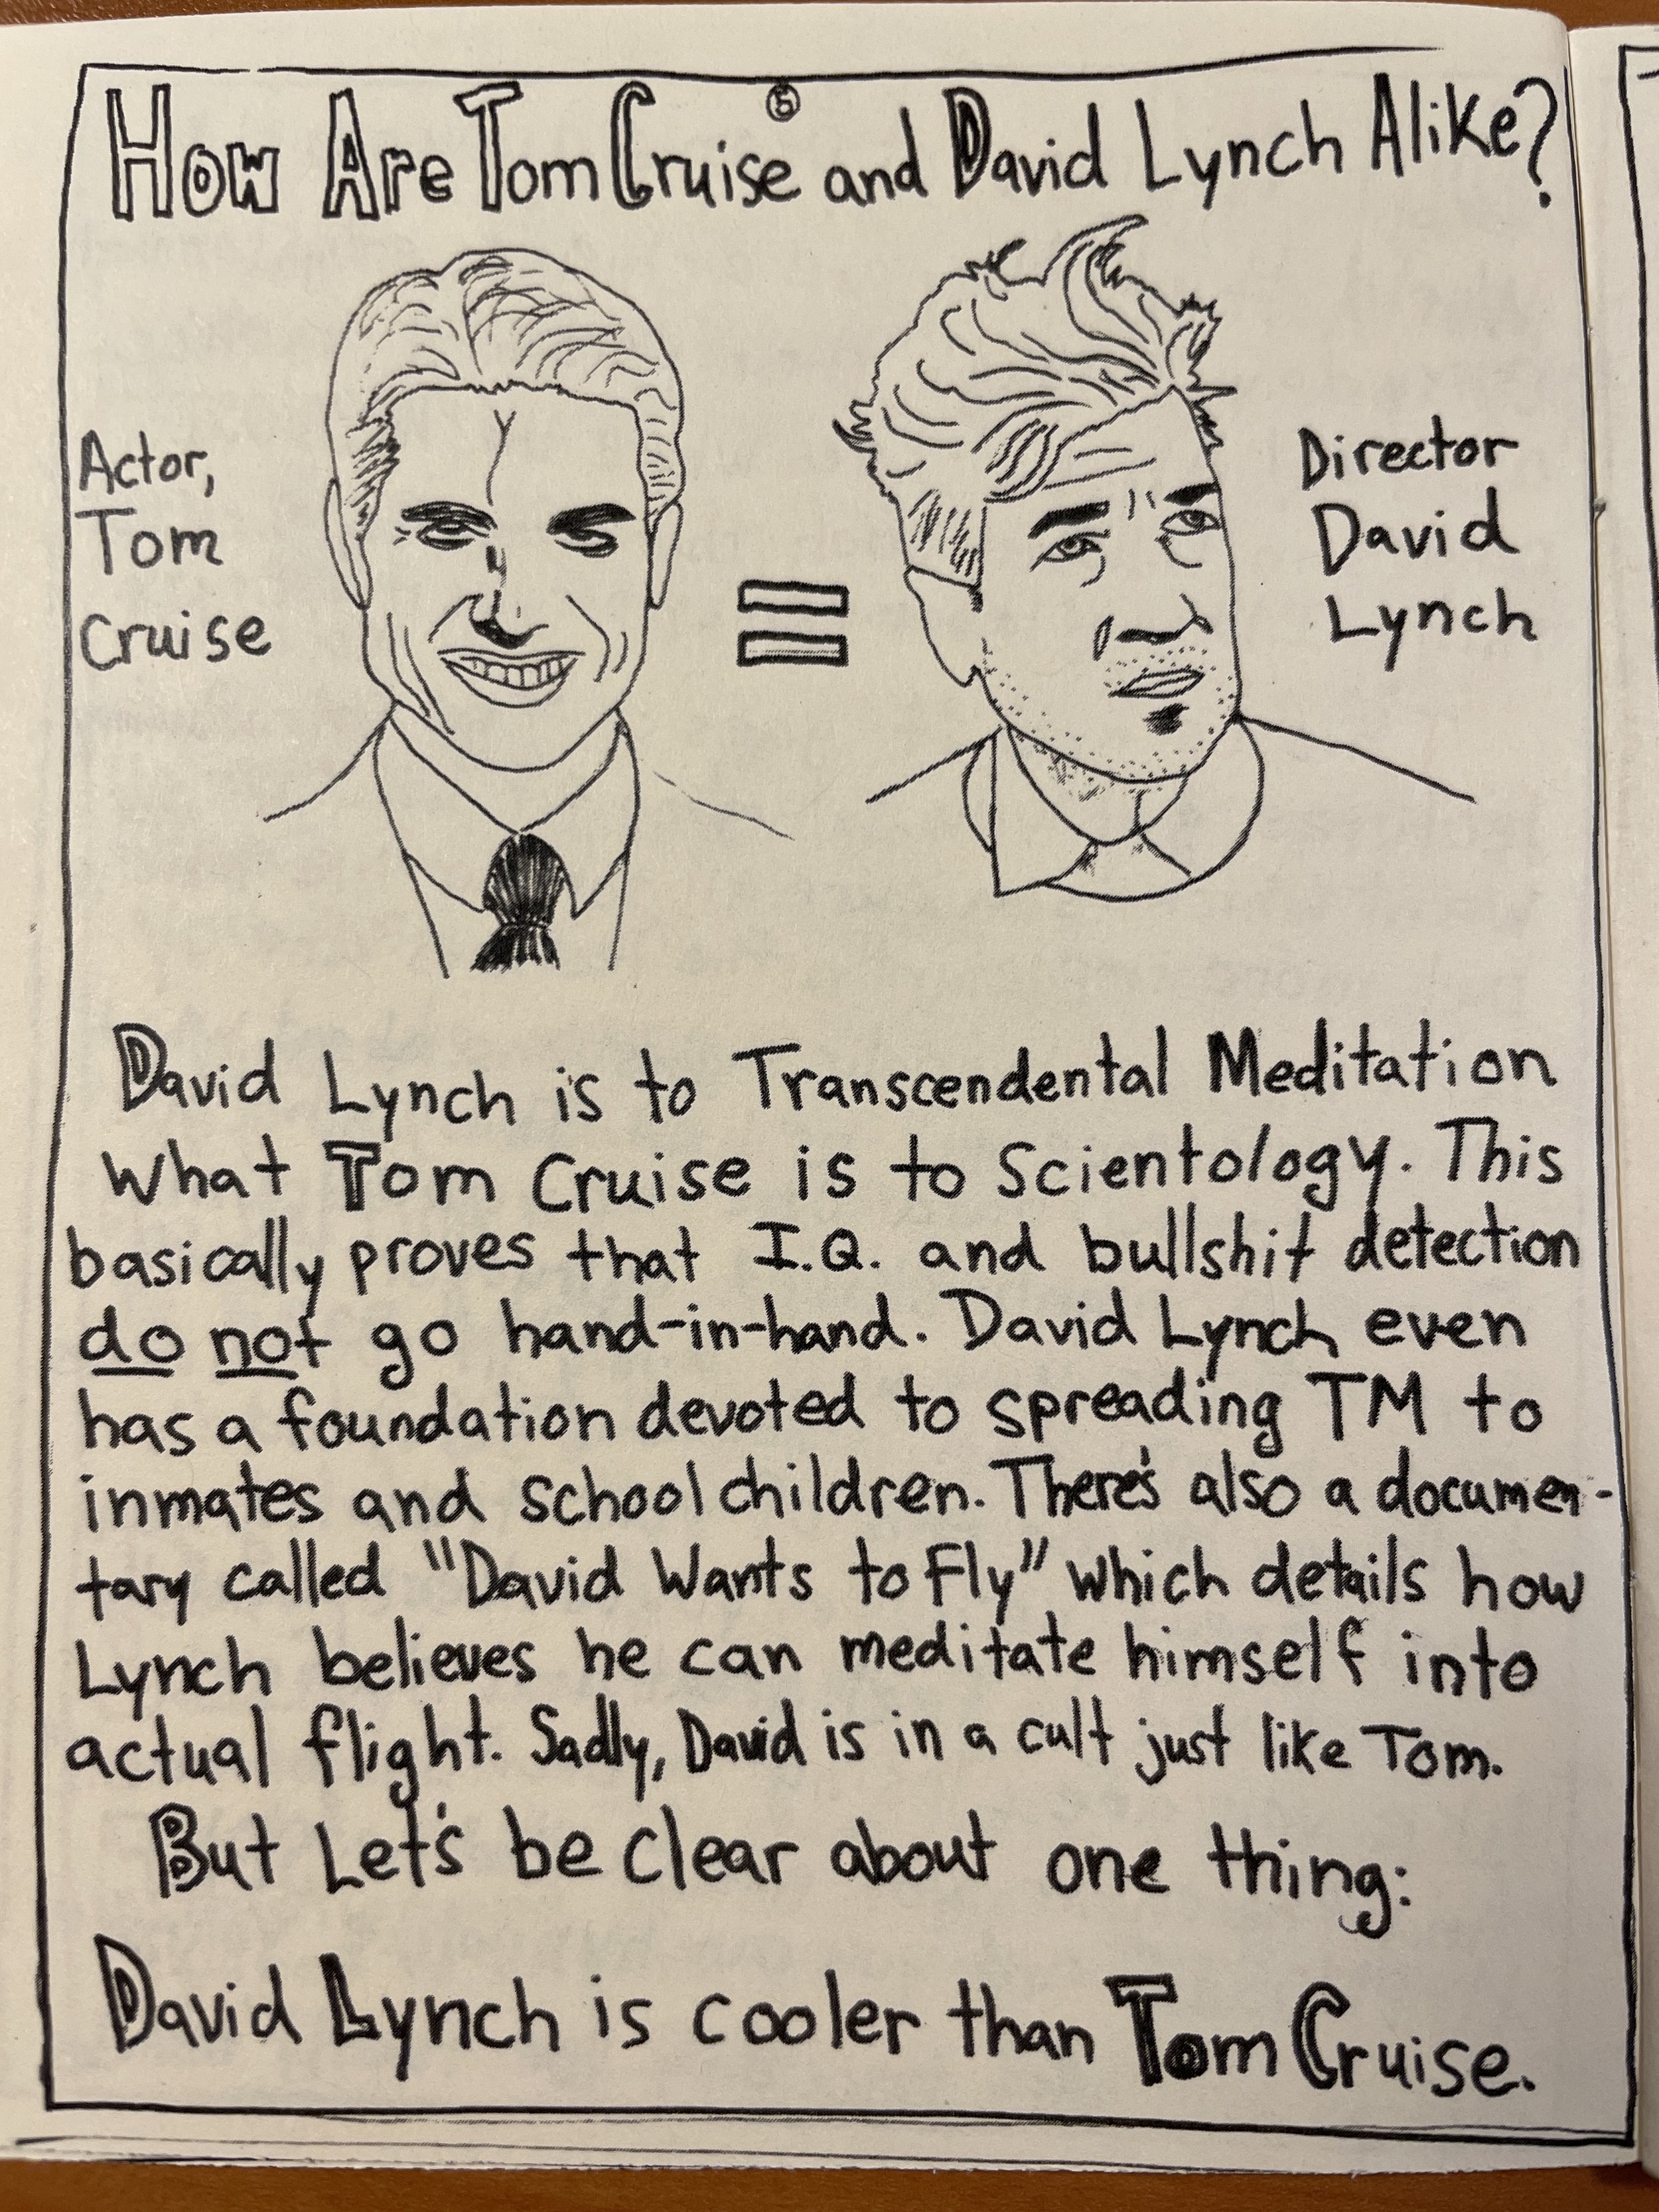 How Are Tom Cruise and David Lynch Alike?
Actor,
Tom
Cruise
=
Director
David
Lynch
David Lynch is to Transcendental Meditation
What Tom Cruise is to Scientology. This
basically proves that I.Q. and bullshit detection
do not go hand-in-hand. David Lynch even
has a foundation devoted to spreading TM to
inmates and school children. There's also a documen-
tary called "David Wants to Fly" which details how
Lynch believes he can meditate himself into
actual flight. Sadly, David is in a cult just like Tom.
But Let's be clear about one thing:
David Lynch is cooler than Tom Cruise.